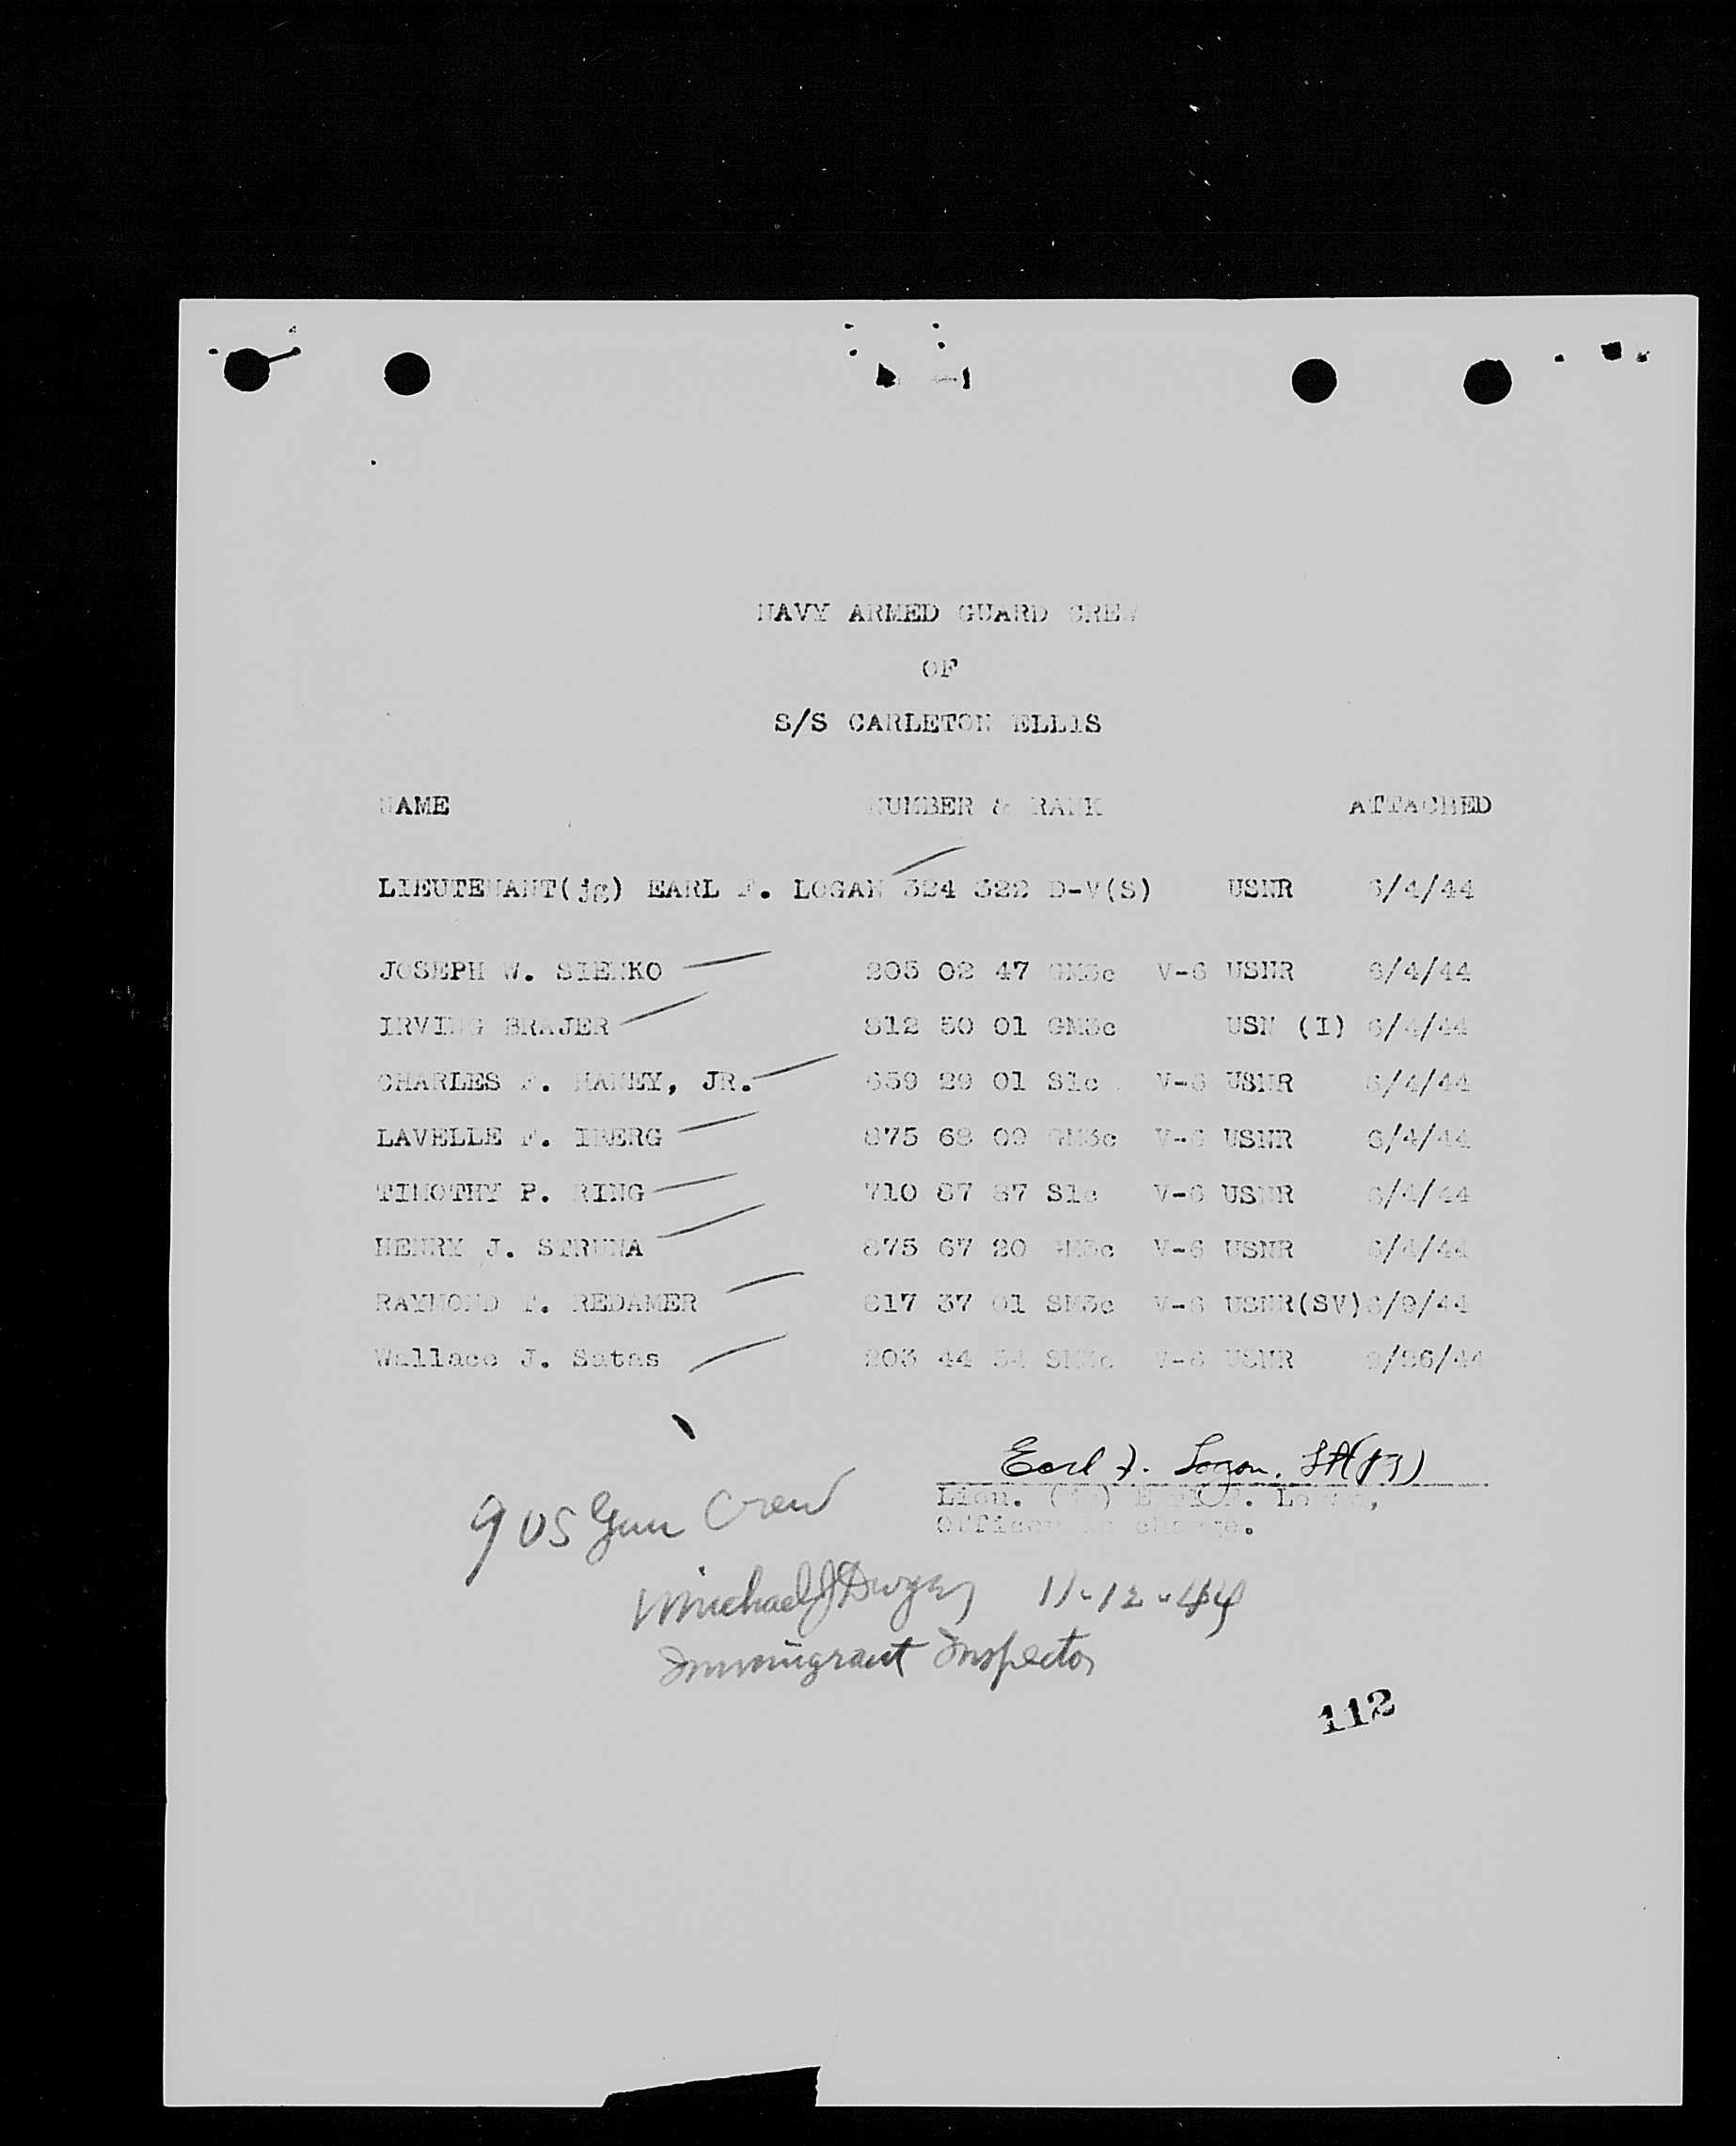 NAVY ARMED GUARD CREW
OF
S/S CARLETON ELLIS
NAME NUMBER & RANK ATTACHED
LIEUTENANT(jg) EARL F. LOGAN 324 322 D-V(S) USNR 6/4/44
JOSEPH W. SIENKO 205 02 47 GM3c V-6 USNR 6/4/44
IRVING BRAJER 812 50 01 GM3c USN (I) 6/4/44
CHARLES F. HANEY, JR. 659 29 01 S1c V-6 USNR 6/4/44
LAVELLE F. 875 68 09 GM3c V-6 USNR 6/4/44
TIMOTHY P. RING 710 87 87 S1c V-6 USNR 6/4/44
HENRY J. STRUNA 875 67 20 GM3c V-6 USNR 6/4/44
RAYMOND F. REDAMER 817 37 01 SM3c V-6 USNR(SV) 6/9/44
Wallace J. Satas 203 44 V-6 USNR 9/26/44
Earl F. Logan. Lt(jg)
Lieu. (jg) Earl F. Logan,
Officer in charge.
9 US Gun Crew
Michael J Dwyer 11-12-44
Immigrant Inspector
112